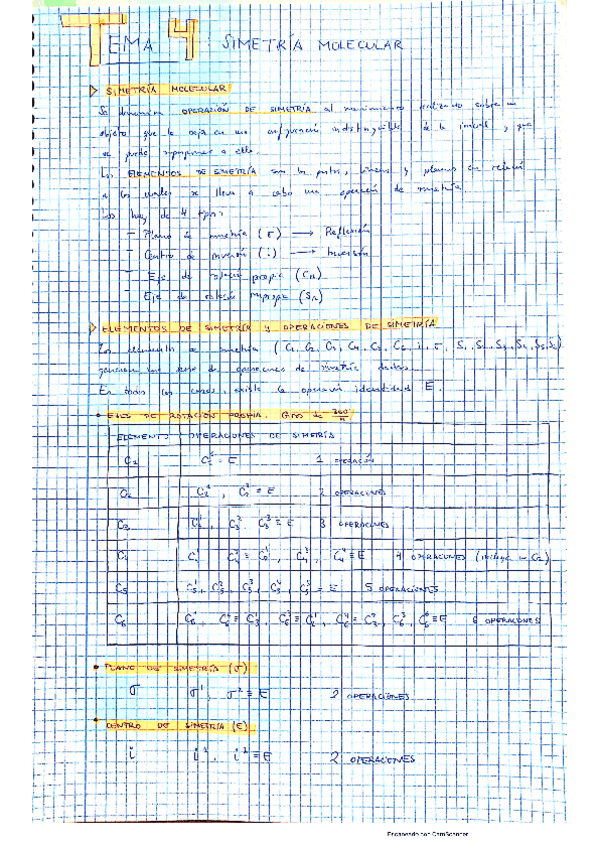 TEMA 4: SIMETRÍA MOLECULAR
SIMETRÍA MOLECULAR
Se denomina OPERACIÓN DE SIMETRÍA al movimiento realizado sobre un
objeto que lo deja en una configuración indistinguible de la inicial, y que
se puede superponer a ella.
Los ELEMENTOS DE SIMETRÍA son los puntos, líneas y planos en relación
a los cuales se lleva a cabo una operación de simetría.
Los hay de 4 tipos:
- Plano de simetría (σ) → Reflexión
- Centro de inversión (i) → Inversión
- Eje de rotación propia (Cn)
- Eje de rotación impropia (Sn)
ELEMENTOS DE SIMETRÍA Y OPERACIONES DE SIMETRÍA
Los elementos de simetría (C1, C2, C3, C4, C5, C6, i, σ, S1, S2, S3, S4, S5, S6)
generan una serie de operaciones de simetría dadas.
En todos los casos, existe la operación identidad E.
• EJES DE ROTACIÓN PROPIA. Giro de 360/n
ELEMENTO OPERACIONES DE SIMETRÍA
C1 C1^1 = E 1 OPERACIÓN
C2 C2^1, C2^2 ≡ E 2 OPERACIONES
C3 C3^1, C3^2, C3^3 ≡ E 3 OPERACIONES
C4 C4^1 C4^2 ≡ C2^1, C4^3, C4^4 ≡ E 4 OPERACIONES (incluye un C2)
C5 C5^1, C5^2, C5^3, C5^4, C5^5 = E 5 OPERACIONES
C6 C6^1, C6^2 ≡ C3^1, C6^3 ≡ C2^1, C6^4 = C3^2, C6^5, C6^6 ≡ E 6 OPERACIONES
• PLANO DE SIMETRÍA (σ)
σ σ^1, σ^2 ≡ E 2 OPERACIONES
• CENTRO DE SIMETRÍA (E)
i i^1, i^2 ≡ E 2 OPERACIONES
Escaneado con CamScanner